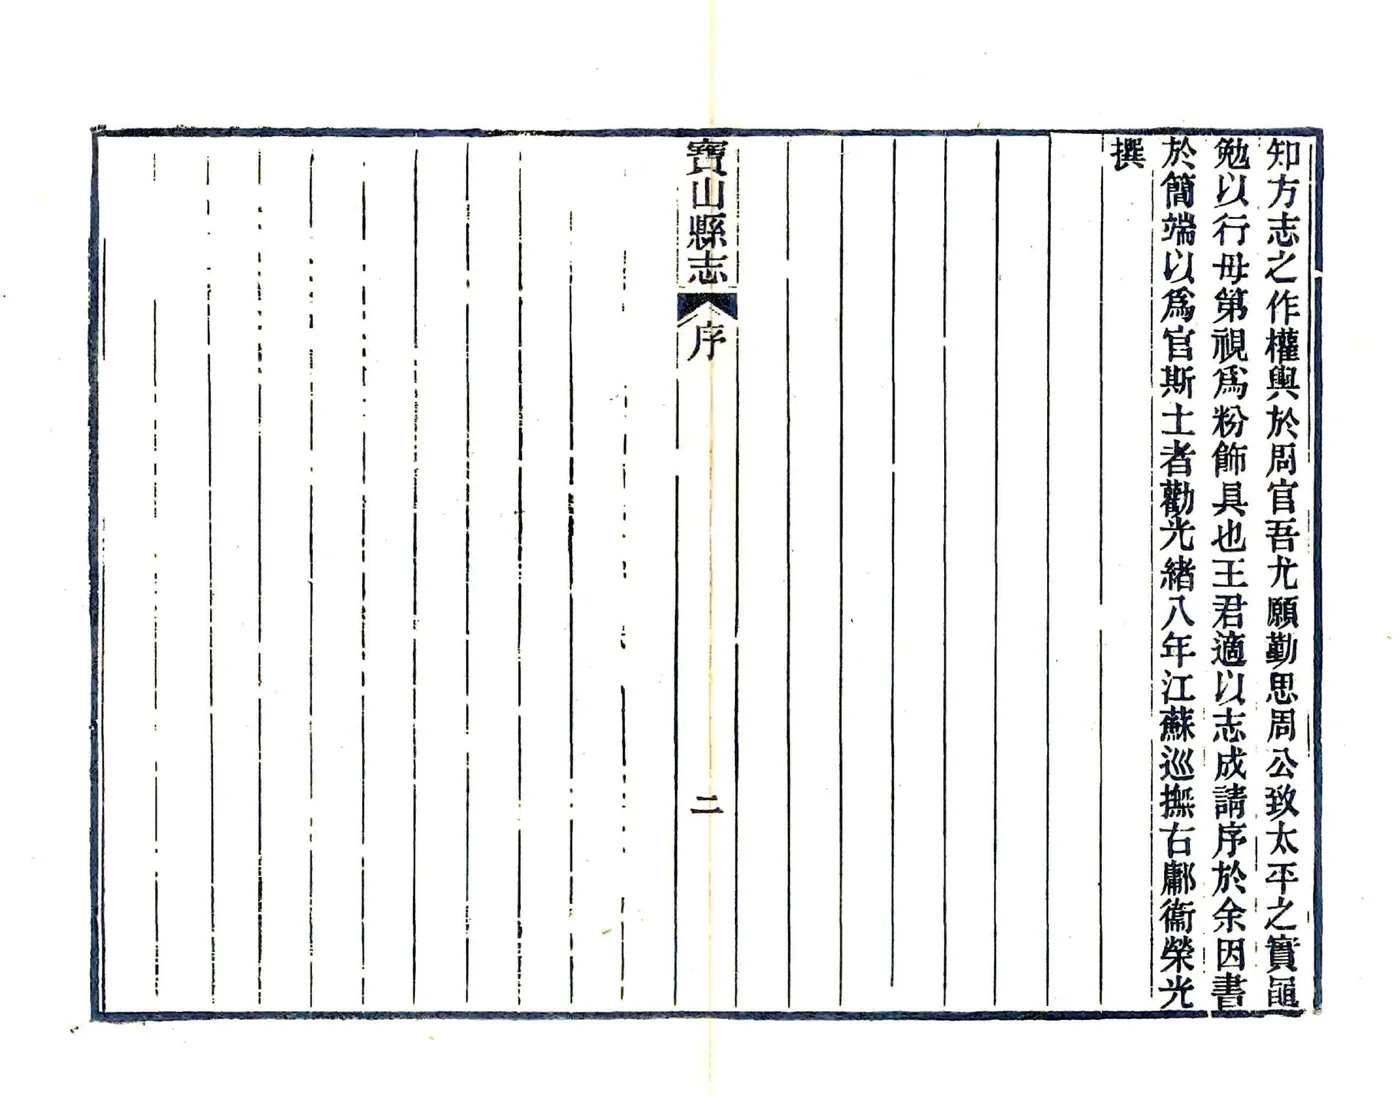 知方志之作權輿於周官吾尤願勤思周公致太平之實黽
勉以行毋第視爲粉飾具也王君適以志成請序於余因書
於簡端以爲官斯土者勸光緒八年江蘇巡撫右鄘衞榮光
撰
寶山縣志
序
二